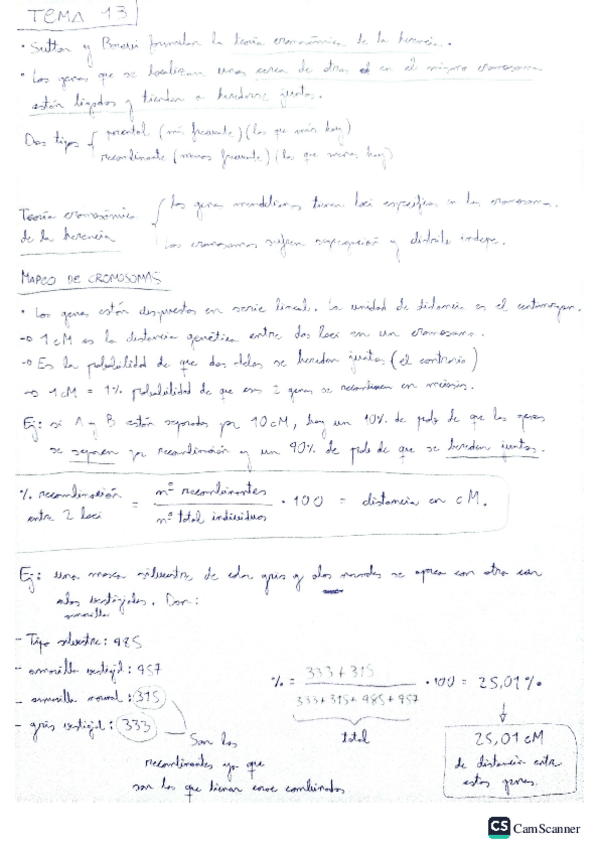 TEMA 13
• Sutton y Boveri formulan la teoría cromosómica de la herencia.
• Los genes que se localizan unos cerca de otros en el mismo cromosoma
están ligados y tienden a heredarse juntos.
Dos tipos { parental (más frecuente) (los que más hay)
recombinante (menos frecuente) (los que menos hay)
Teoría cromosómica de la herencia { Los genes mendelianos tienen loci específicos en los cromosomas.
Los cromosomas sufren segregación y distrib. indepe.
MAPEO DE CROMOSOMAS
• Los genes están dispuestos en serie lineal. La unidad de distancia es el centimorgan.
→ 1 cM es la distancia genética entre dos loci en un cromosoma.
→ Es la probabilidad de que dos alelos se heredan juntos (el contrario)
→ 1 cM = 1% probabilidad de que esos 2 genes se recombinen en meiosis.
Ej: si A y B están separados por 10 cM, hay un 10% de prob de que los genes
se separen por recombinación y un 90% de prob de que se heredan juntos.
% recombinación entre 2 loci = nº recombinantes / nº total individuos · 100 = distancia en cM.
Ej: una mosca silvestre, de color gris y alas normales se aparea con otra con
alas vestigiales. Dan:
amarilla
- Tipo silvestre: 485
- amarilla vestigial: 457
- amarilla normal: 315
- gris vestigial: 333
% = 333+315 / 333+315+485+457 · 100 = 25,01%
total
Son los
recombinantes ya que
son los que tienen combinados
25,01 cM
de distancia entre
estos genes.
CS CamScanner